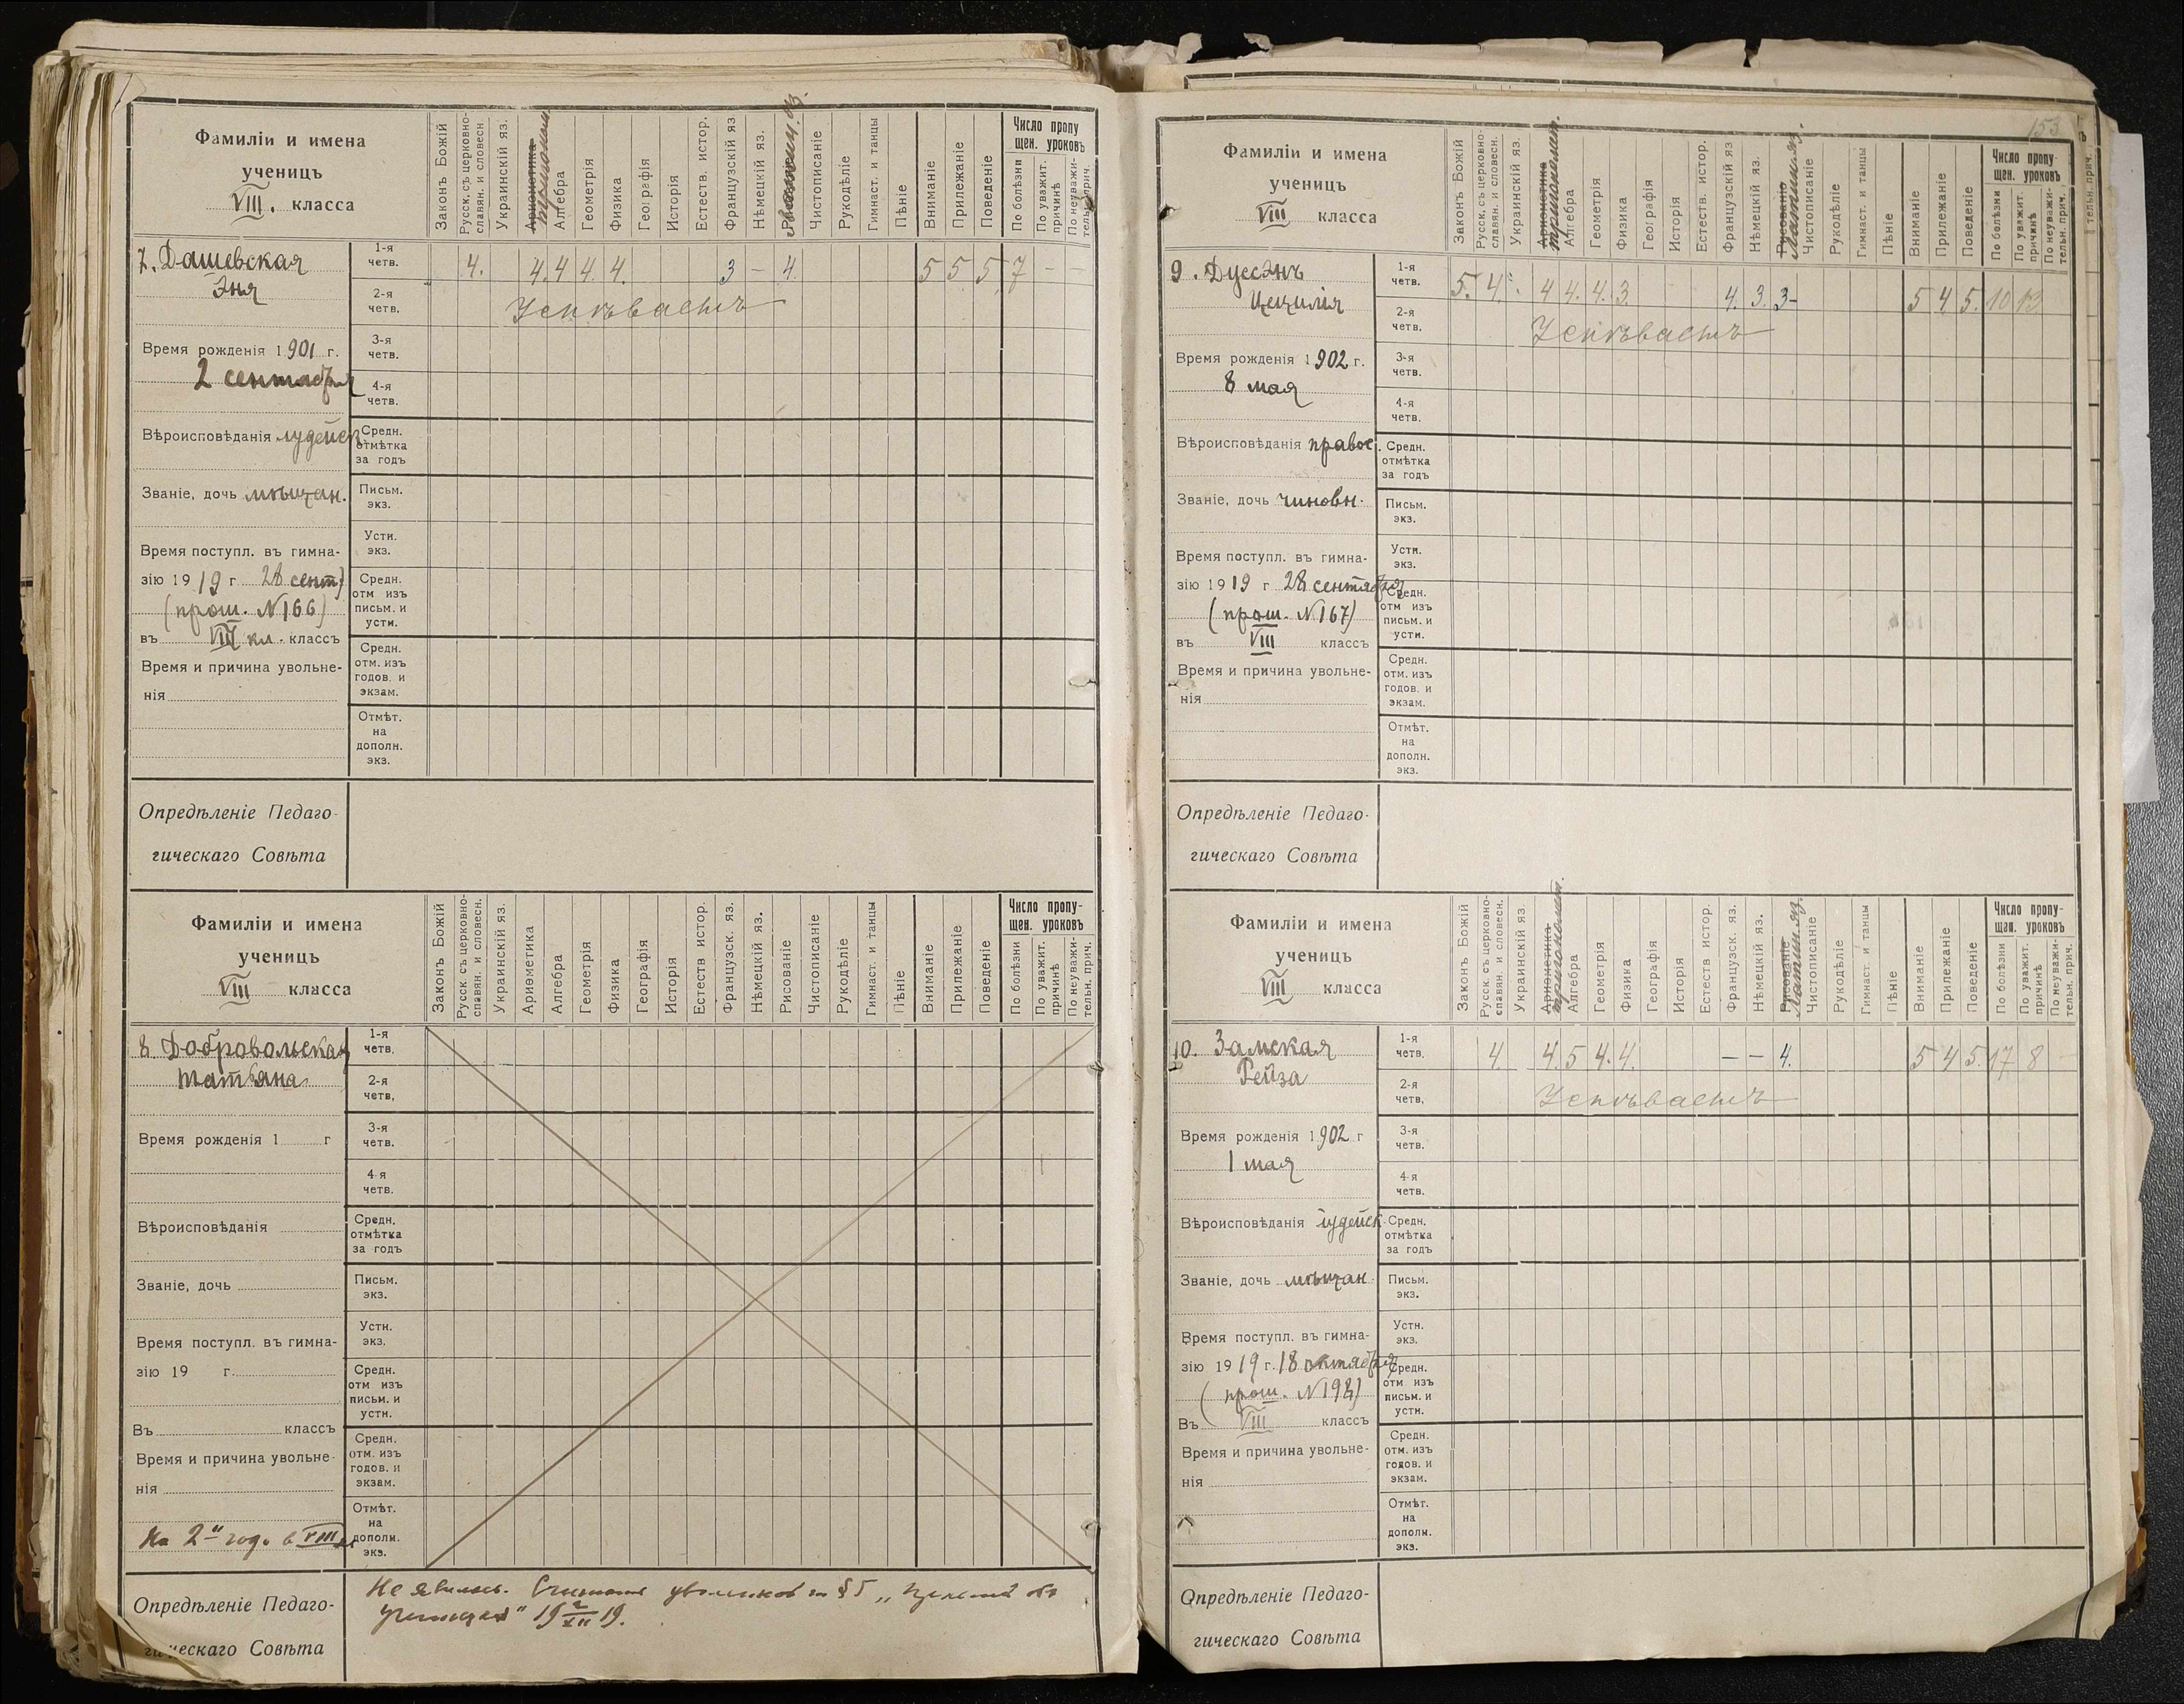 Фамиліи и имена
ученицъ
VIII. класса
Законъ Божій
Русск. съ церковно-
славян. и словесн
Украинскій яз.
Ариѳметика
тригонометр.
Алгебра
Геометрія
Физика
Географія
Исторія
Естеств. истор.
Французскій яз
Нѣмецкій яз.
Чистописаніе
Рукодѣліе
Гимнаст. и танцы
Пѣніе
Вниманіе
Прилежаніе
Поведеніе
Число пропу
щен. уроковъ
По болѣзни
По уважит.
причинѣ
По неуважи-
тельн. прич.
7. Дашевская
Эня
1-я
четв.
4. 4. 4 4. 4. 3 – 4. 5 5 5 7 – –
2-я
четв.
Успѣваетъ
Время рожденія 1901 г.
2 сентября
3-я
четв.
4-я
четв.
Вѣроисповѣданія іудейск.
Средн.
отмѣтка
за годъ
Званіе, дочь мѣщан.
Письм.
экз.
Время поступл. въ гимна-
зію 1919 г 28 сент.
(прош. N 166)
въ VIII кл. классъ
Устн.
экз.
Средн.
отм изъ
письм. и
устн.
Время и причина увольне-
нія
Средн.
отм. изъ
годов. и
экзам.
Отмѣт.
на
дополн.
экз.
Опредѣленіе Педаго-
гическаго Совѣта
Фамиліи и имена
ученицъ
VIII класса
Законъ Божій
Русск. съ церковно-
славян. и словесн.
Украинскій яз.
Ариѳметика
Алгебра
Геометрія
Физика
Географія
Исторія
Естеств истор.
Французск. яз.
Нѣмецкій яз.
Рисованіе
Чистописаніе
Рукодѣліе
Гимнаст. и танцы
Пѣніе
Вниманіе
Прилежаніе
Поведеніе
Число пропу-
щен. уроковъ
По болѣзни
По уважит.
причинѣ
По неуважи-
тельн. прич.
8 Добровольская
Татьяна
1-я
четв.
2-я
четв.
Время рожденія 1 г
3-я
четв.
4-я
четв.
Вѣроисповѣданія
Средн.
отмѣтка
за годъ
Званіе, дочь
Письм.
экз.
Время поступл. въ гимна-
зію 19 г.
Въ классъ
Устн.
экз.
Средн.
отм изъ
письм. и
устн.
Время и причина увольне-
нія
На 2й год. в VIII
Средн.
отм. изъ
годов. и
экзам.
Отмѣт.
на
дополн.
экз.
Опредѣленіе Педаго-
гическаго Совѣта
Не явилась. § 5
19 XII 19.
153
Фамиліи и имена
ученицъ
VIII класса
Законъ Божій
Русск. съ церковно
славян. и словесн.
Украинскій яз.
Ариѳметика
тригонометр.
Алгебра
Геометрія
Физика
Географія
Исторія
Естеств. истор.
Французскій яз
Нѣмецкій яз.
Рисованіе
Латин. яз.
Чистописаніе
Рукодѣліе
Гимнаст. и танцы
Пѣніе
Вниманіе
Прилежаніе
Поведеніе
Число пропу-
щен. уроковъ
По болѣзни
По уважит.
причинѣ
По неуважи-
тельн. прич.
тельн. прич.
9. Дуссанъ
Цецилія
1-я
четв.
5. 4. 4 4. 4. 3. 4. 3. 3- 5 4 5. 10 13
2-я
четв.
Успѣваетъ
Время рожденія 1902 г.
8 мая
3-я
четв.
4-я
четв.
Вѣроисповѣданія правос.
Средн.
отмѣтка
за годъ
Званіе, дочь чиновн.
Письм.
экз.
Время поступл. въ гимна-
зію 1919 г 28 сентября
(прош. N 167)
въ VIII классъ
Устн.
экз.
Средн.
отм изъ
письм. и
устн.
Время и причина увольне-
нія
Средн.
отм. изъ
годов. и
экзам.
Отмѣт.
на
дополн.
экз.
Опредѣленіе Педаго-
гическаго Совѣта
Фамиліи и имена
ученицъ
VIII класса
Законъ Божій
Русск. съ церковно-
славян. и словесн.
Украинскій яз.
Ариѳметика
тригонометр.
Алгебра
Геометрія
Физика
Географія
Исторія
Естеств истор.
Французск. яз.
Нѣмецкій яз.
Рисованіе
Латин. яз.
Чистописаніе
Рукодѣліе
Гимнаст. и танцы
Пѣніе
Вниманіе
Прилежаніе
Поведеніе
Число пропу-
щен. уроковъ
По болѣзни
По уважит.
причинѣ
По неуважи-
тельн. прич.
10. Замская
Рейза
1-я
четв.
4. 4. 5 4. 4. – – 4. 5 4 5. 17 8 –
2-я
четв.
Успѣваетъ
Время рожденія 1902 г
1 мая
3-я
четв.
4-я
четв.
Вѣроисповѣданія іудейск.
Средн.
отмѣтка
за годъ
Званіе, дочь мѣщан.
Письм.
экз.
Время поступл. въ гимна-
зію 1919 г. 18 октября
(прош. N 198)
Въ VIII классъ
Устн.
экз.
Средн.
отм изъ
письм. и
устн.
Время и причина увольне-
нія
Средн.
отм. изъ
годов. и
экзам.
Отмѣт.
на
дополн.
экз.
Опредѣленіе Педаго-
гическаго Совѣта